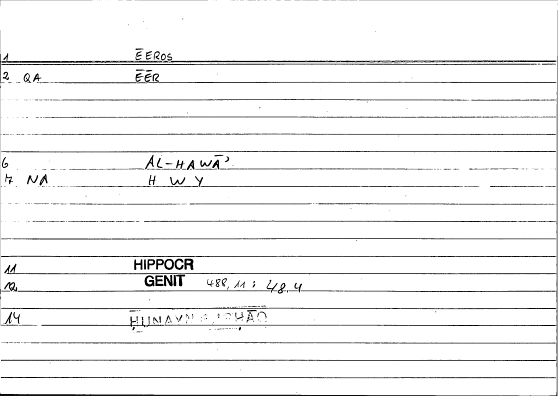 1 ĒEROS
2 QA ĒĒR
6 AL-HAWĀʾ
7 NA H W Y
11 HIPPOCR
12 GENIT 488,11 : 48.4
14 ḤUNAYN